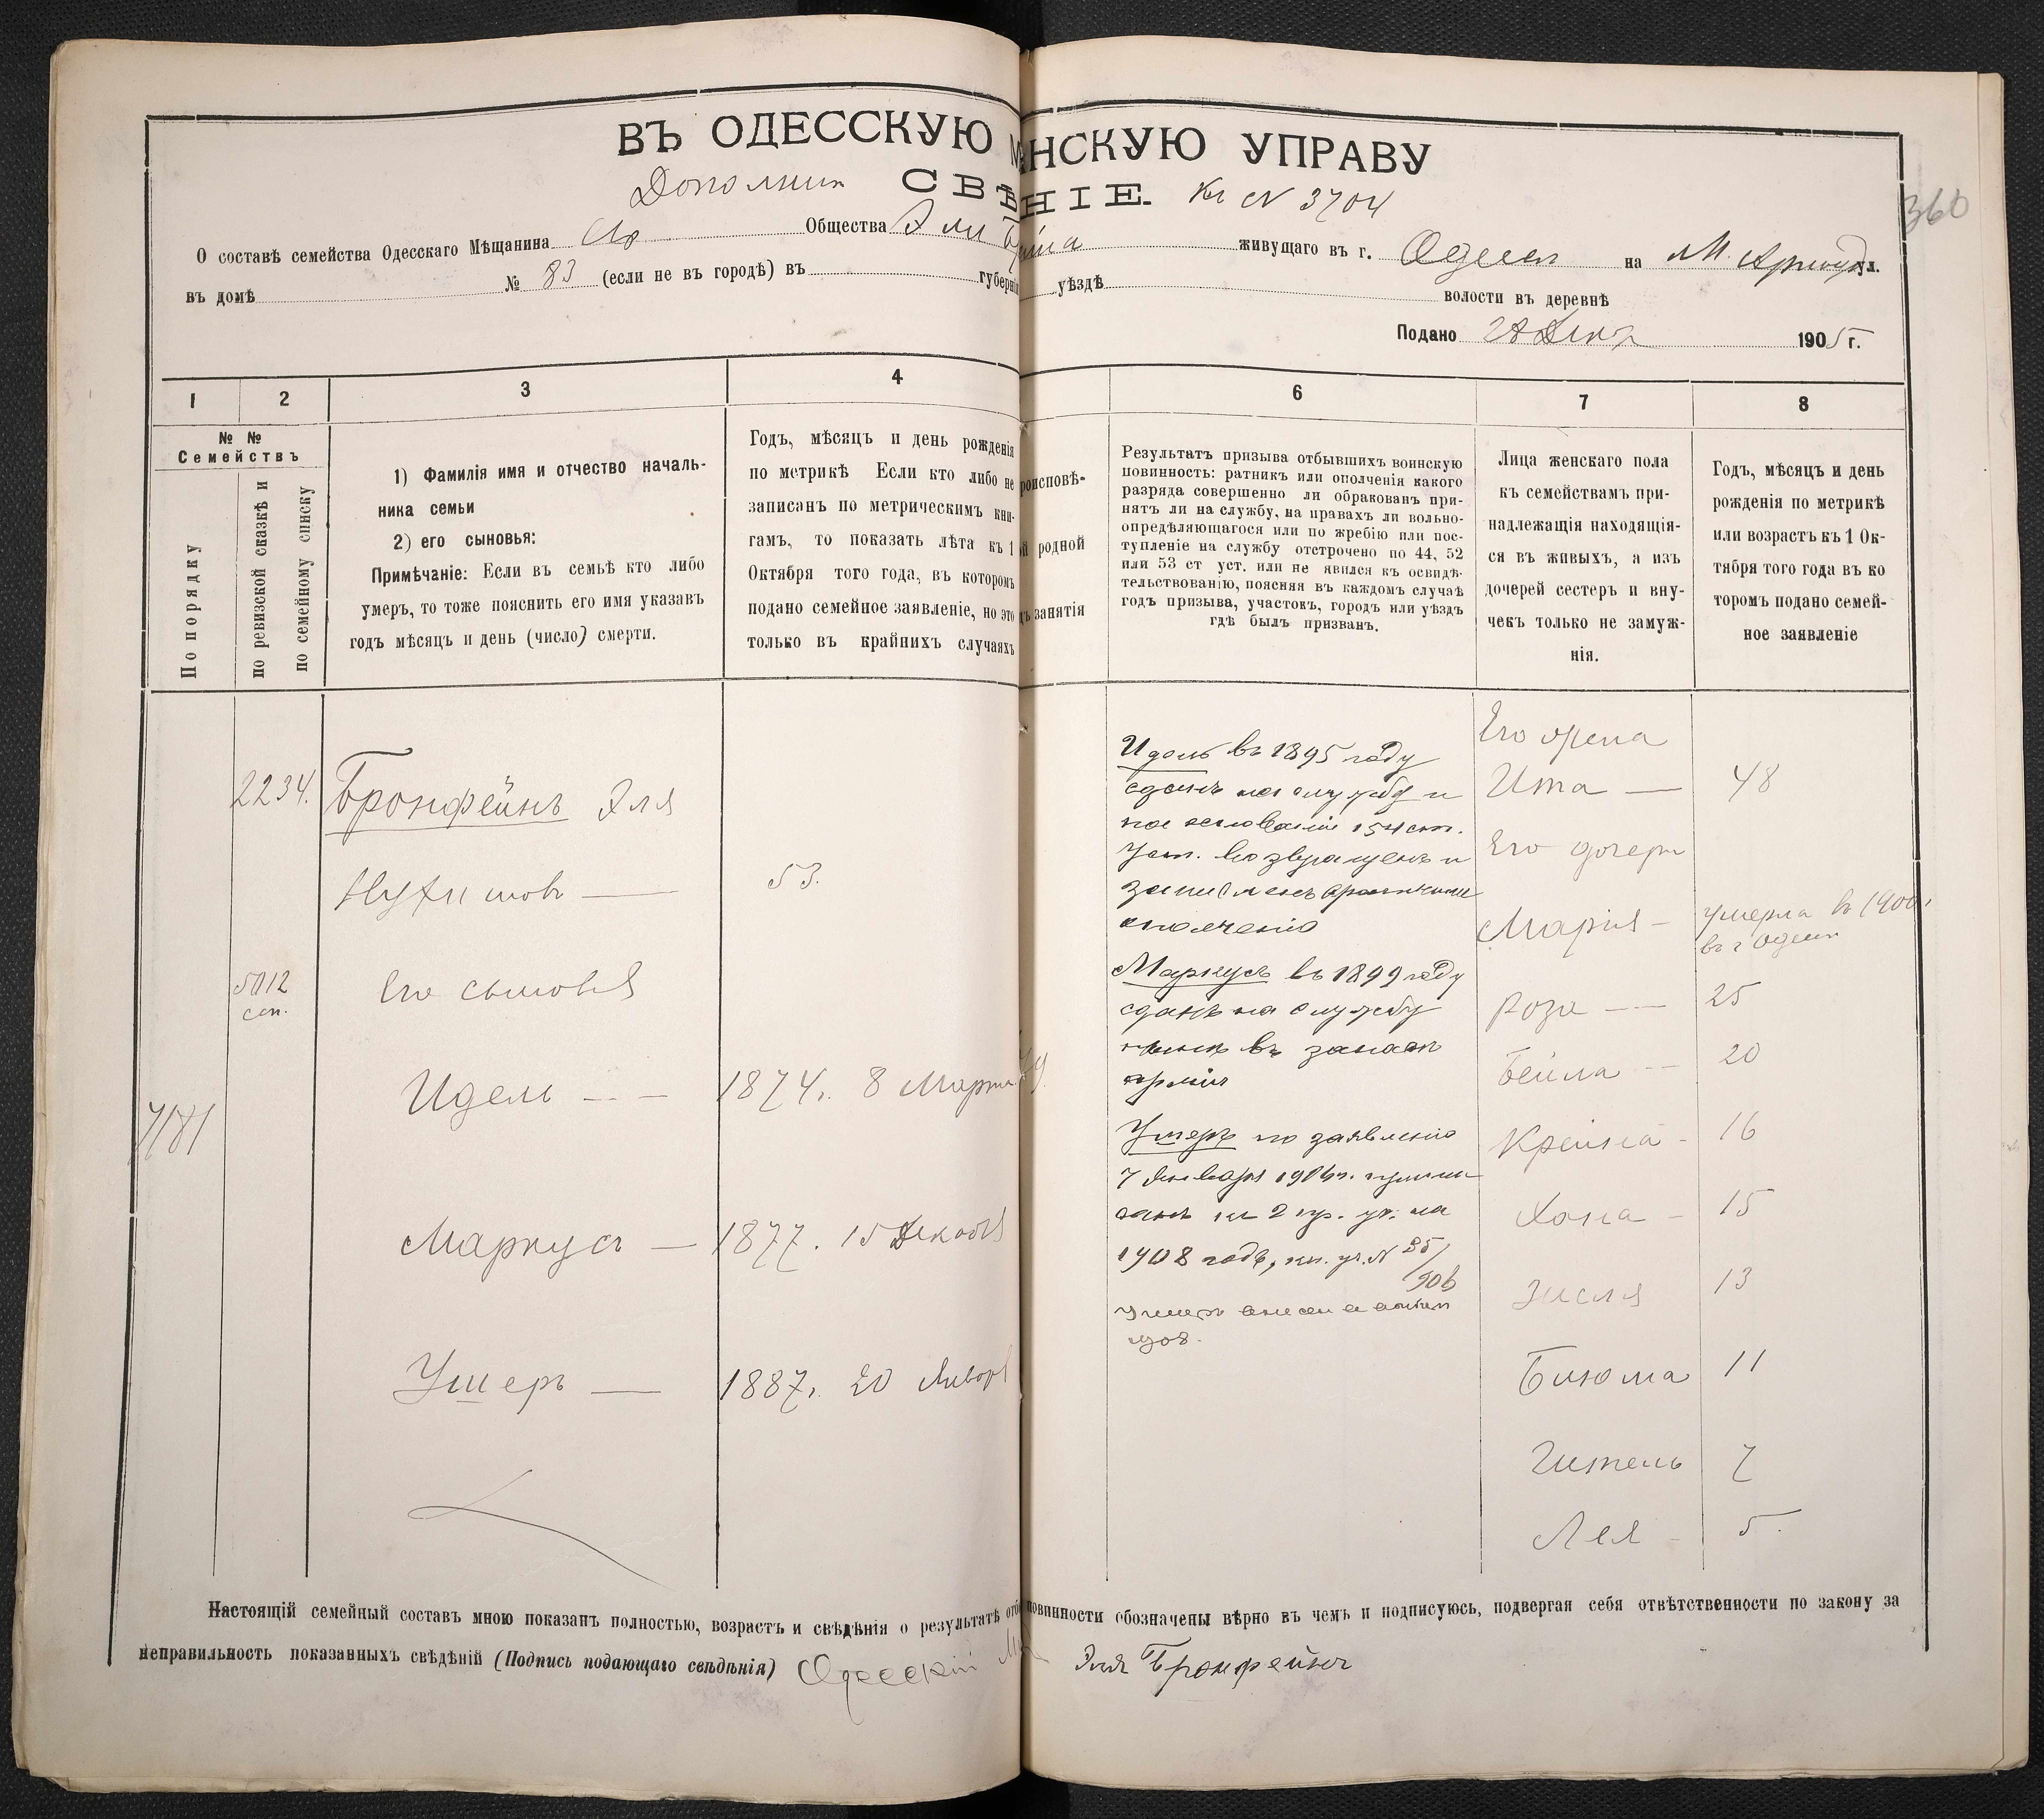 ВЪ ОДЕССКУЮ М НСКУЮ УПРАВУ
СВѢ НІЕ. Къ № 3704
360
О составѣ семейства Одесскаго Мѣщанина Общества живущаго въ г. Одессѣ на М. Арнаут ул.
въ домѣ № 83 (если не въ городѣ) въ губерніи уѣздѣ волости въ деревнѣ
Подано 28 Дек 1905 г.
1 2 3 4 6 7 8
№ №
Семействъ
По порядку
по ревизской сказкѣ и
по семейному списку
1) Фамилія имя и отчество началь-
ника семьи
2) его сыновья:
Примѣчаніе: Если въ семьѣ кто либо
умеръ, то тоже пояснить его имя указавъ
годъ мѣсяцъ и день (число) смерти.
Годъ, мѣсяцъ и день рожденія
по метрикѣ Если кто либо не
записанъ по метрическимъ кни-
гамъ, то показать лѣта къ 1
Октября того года, въ которомъ
подано семейное заявленіе, но это
только въ крайнихъ случаяхъ
роисповѣ-
й родной
занятія
Результатъ призыва отбывшихъ воинскую
повинность: ратникъ или ополченія какого
разряда совершенно ли обракованъ при-
нятъ ли на службу, на правахъ ли вольно-
опредѣляющагося или по жребію или пос-
тупленіе на службу отстрочено по 44, 52
или 53 ст уст. или не явился къ освидѣ-
тельствованію, поясняя въ каждомъ случаѣ
годъ призыва, участокъ, городъ или уѣздъ
гдѣ былъ призванъ.
Лица женскаго пола
къ семействамъ при-
надлежащія находящія-
ся въ живыхъ, а изъ
дочерей сестеръ и вну-
чекъ только не замуж-
нія.
Годъ, мѣсяцъ и день
рожденія по метрикѣ
или возрастъ къ 1 Ок-
тября того года въ ко
торомъ подано семей-
ное заявленіе
2234. Бронфейнъ Эля
53.
5012
Его сыновья
7181
Идель 1874г. 8 Марта
Маркусъ 1877. 15 Декабя
Ушеръ 1887г. 20 Январ
Идель въ 1895 году
сданъ на службу и
на основаніи 154 ст.
Уст. возвращенъ и
ополченія
Маркусъ въ 1899 году
сданъ на службу
нынѣ въ запасѣ
арміи
Ушеръ по заявленію
7 Января
1908 годъ,
Его жена
Ита 48
Его дочери
Марія умерла въ 1900г.
въ г Одессѣ
Роза 25
Бейла 20
Крейна 16
Хона 15
Зисля 13
Блюма 11
Гитель 7
Лея 5.
Настоящій семейный составъ мною показанъ полностью, возрастъ и свѣдѣнія о результатѣ отб повинности обозначены вѣрно въ чемъ и подписуюсь, подвергая себя отвѣтственности по закону за
неправильность показанныхъ свѣдѣній (Подпись подающаго свѣдѣнія) Одесскій Эля Бронфейнъ